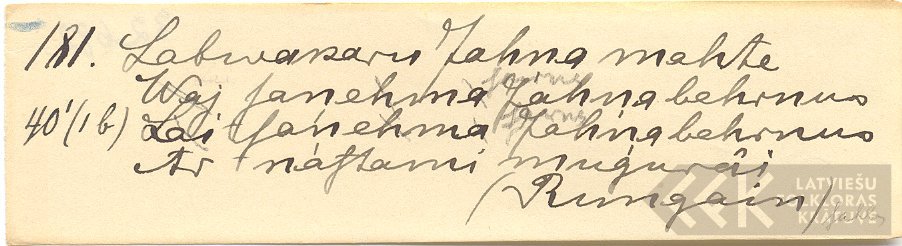 181. Labwakaru Jahna mahte
Waj sanehma Jahna behrnus
40'(1b) Lai sanehma Jahna behrnus
Ar nastami mugurâi
(Rungain)
LATVIEŠU
FOLKLORAS
KRĀTUVE